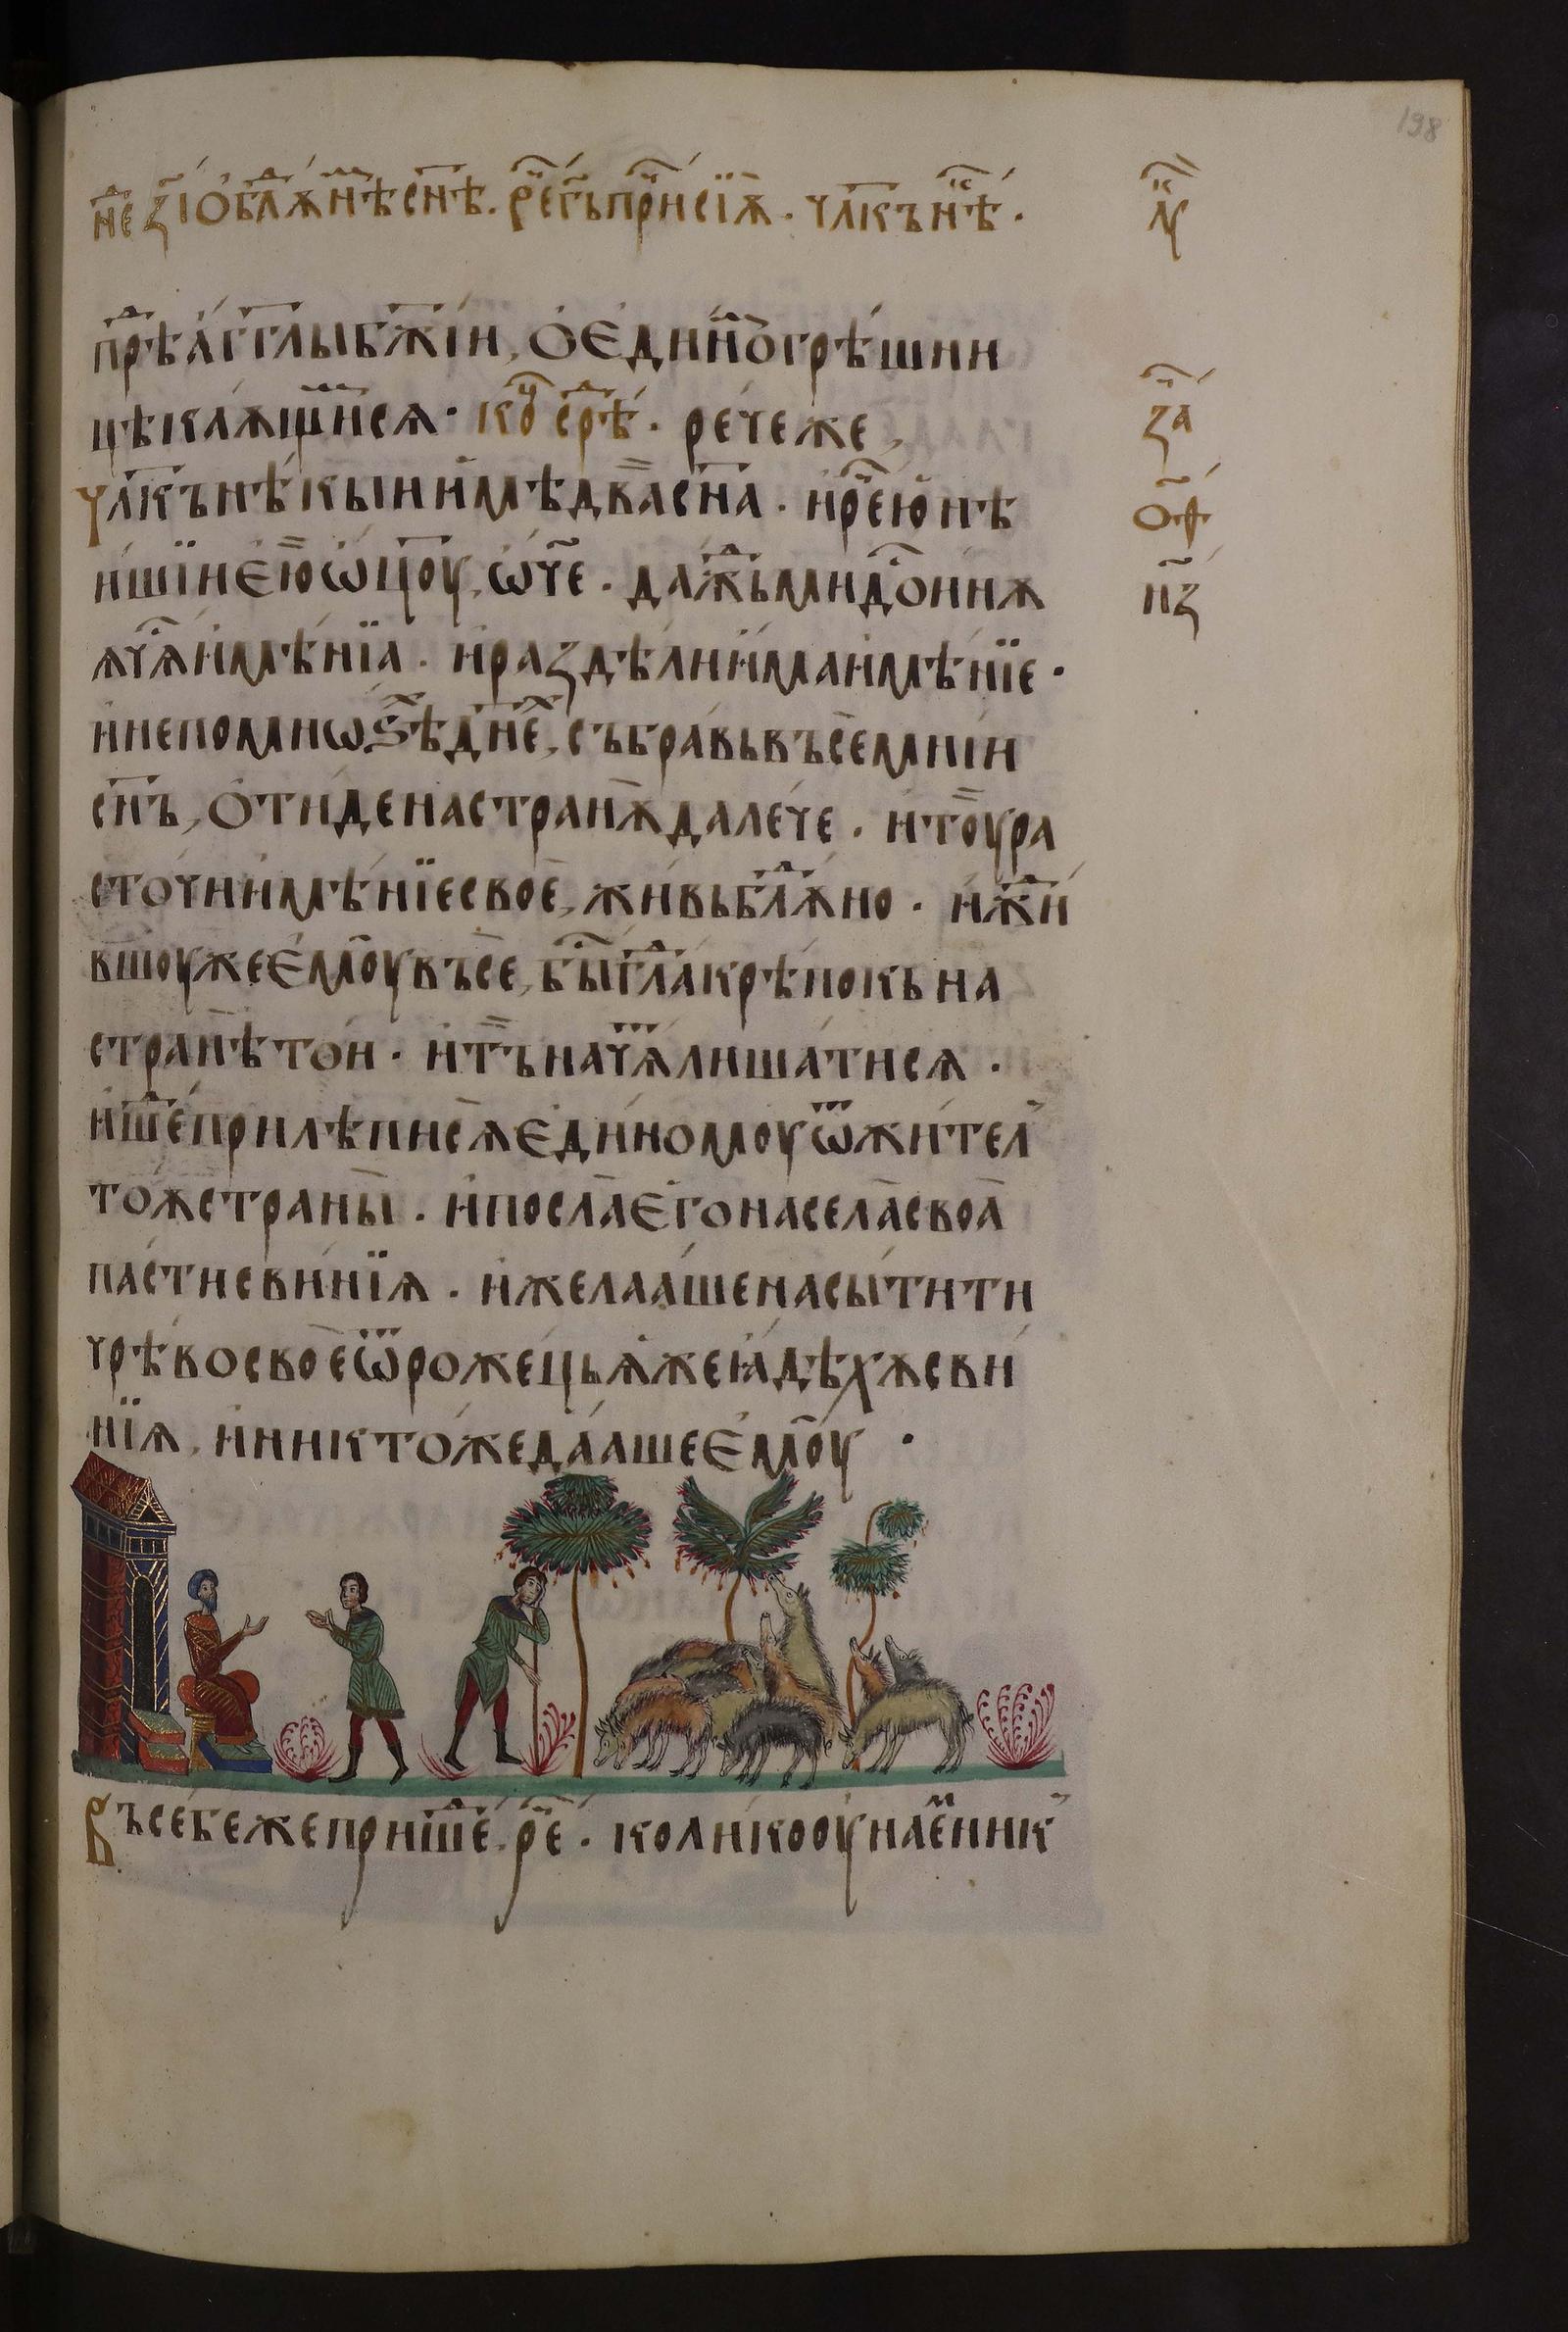 198
нⷣе з҃і о блѫⷣнⷨѣ сн҃ѣ. рⷱе г҃ь прⷮиѫ сїѫ. чл҃къ нⷦѣ.
прⷣѣ а́гг҃лы бж҃їи, ѡ҆ единⷨо грѣшни
цѣ каѫщⷨисѧ. коⷰ҇ срⷣѣ. рече же,
чл҃къ нѣкыи и҆мѣ два сн҃а. и҆ рⷱе ю҆нѣ
и҆шїи є҆ю ѡ҆ц҃оу, ѡ҆ч҃е. дажⷣь ми дⷭ҇оинѫ
ѫ чⷭ҇ѧ и҆мѣнїа. и҆ раздѣли и҆ма и҆мѣнїе.
и҆ не по мнѡѕⷯѣ днеⷯ, събравь въсе мнїи
сн҃ъ, ѡ҆тиде на странѫ далече. и҆ тоу ра
сточи и҆мѣнїе свое, живь блѫⷣно. и҆жⷣи
вшоу же є҆моу въсе, быⷭ҇ глаⷣ крѣпокь на
странѣ тои. и҆ тъ начѧⷮ лишатисѧ.
и҆ шеⷣ прилѣписѧ є҆диномоу ѿ жител҃
тоѫ страны. и҆ посла є҆го на села своа
пасти свинїѧ. и҆ желааше насытити
чрѣво свое ѿ рожець ѧ҆же ꙗ҆дѣхѫ сви
нїѧ, и҆ никтоже дааше є҆моу.
Въ себе же пришеⷣ, рⷱе. колико оу наеⷨник҃
л҃ⷦу
за҃
о҃ф
н҃з